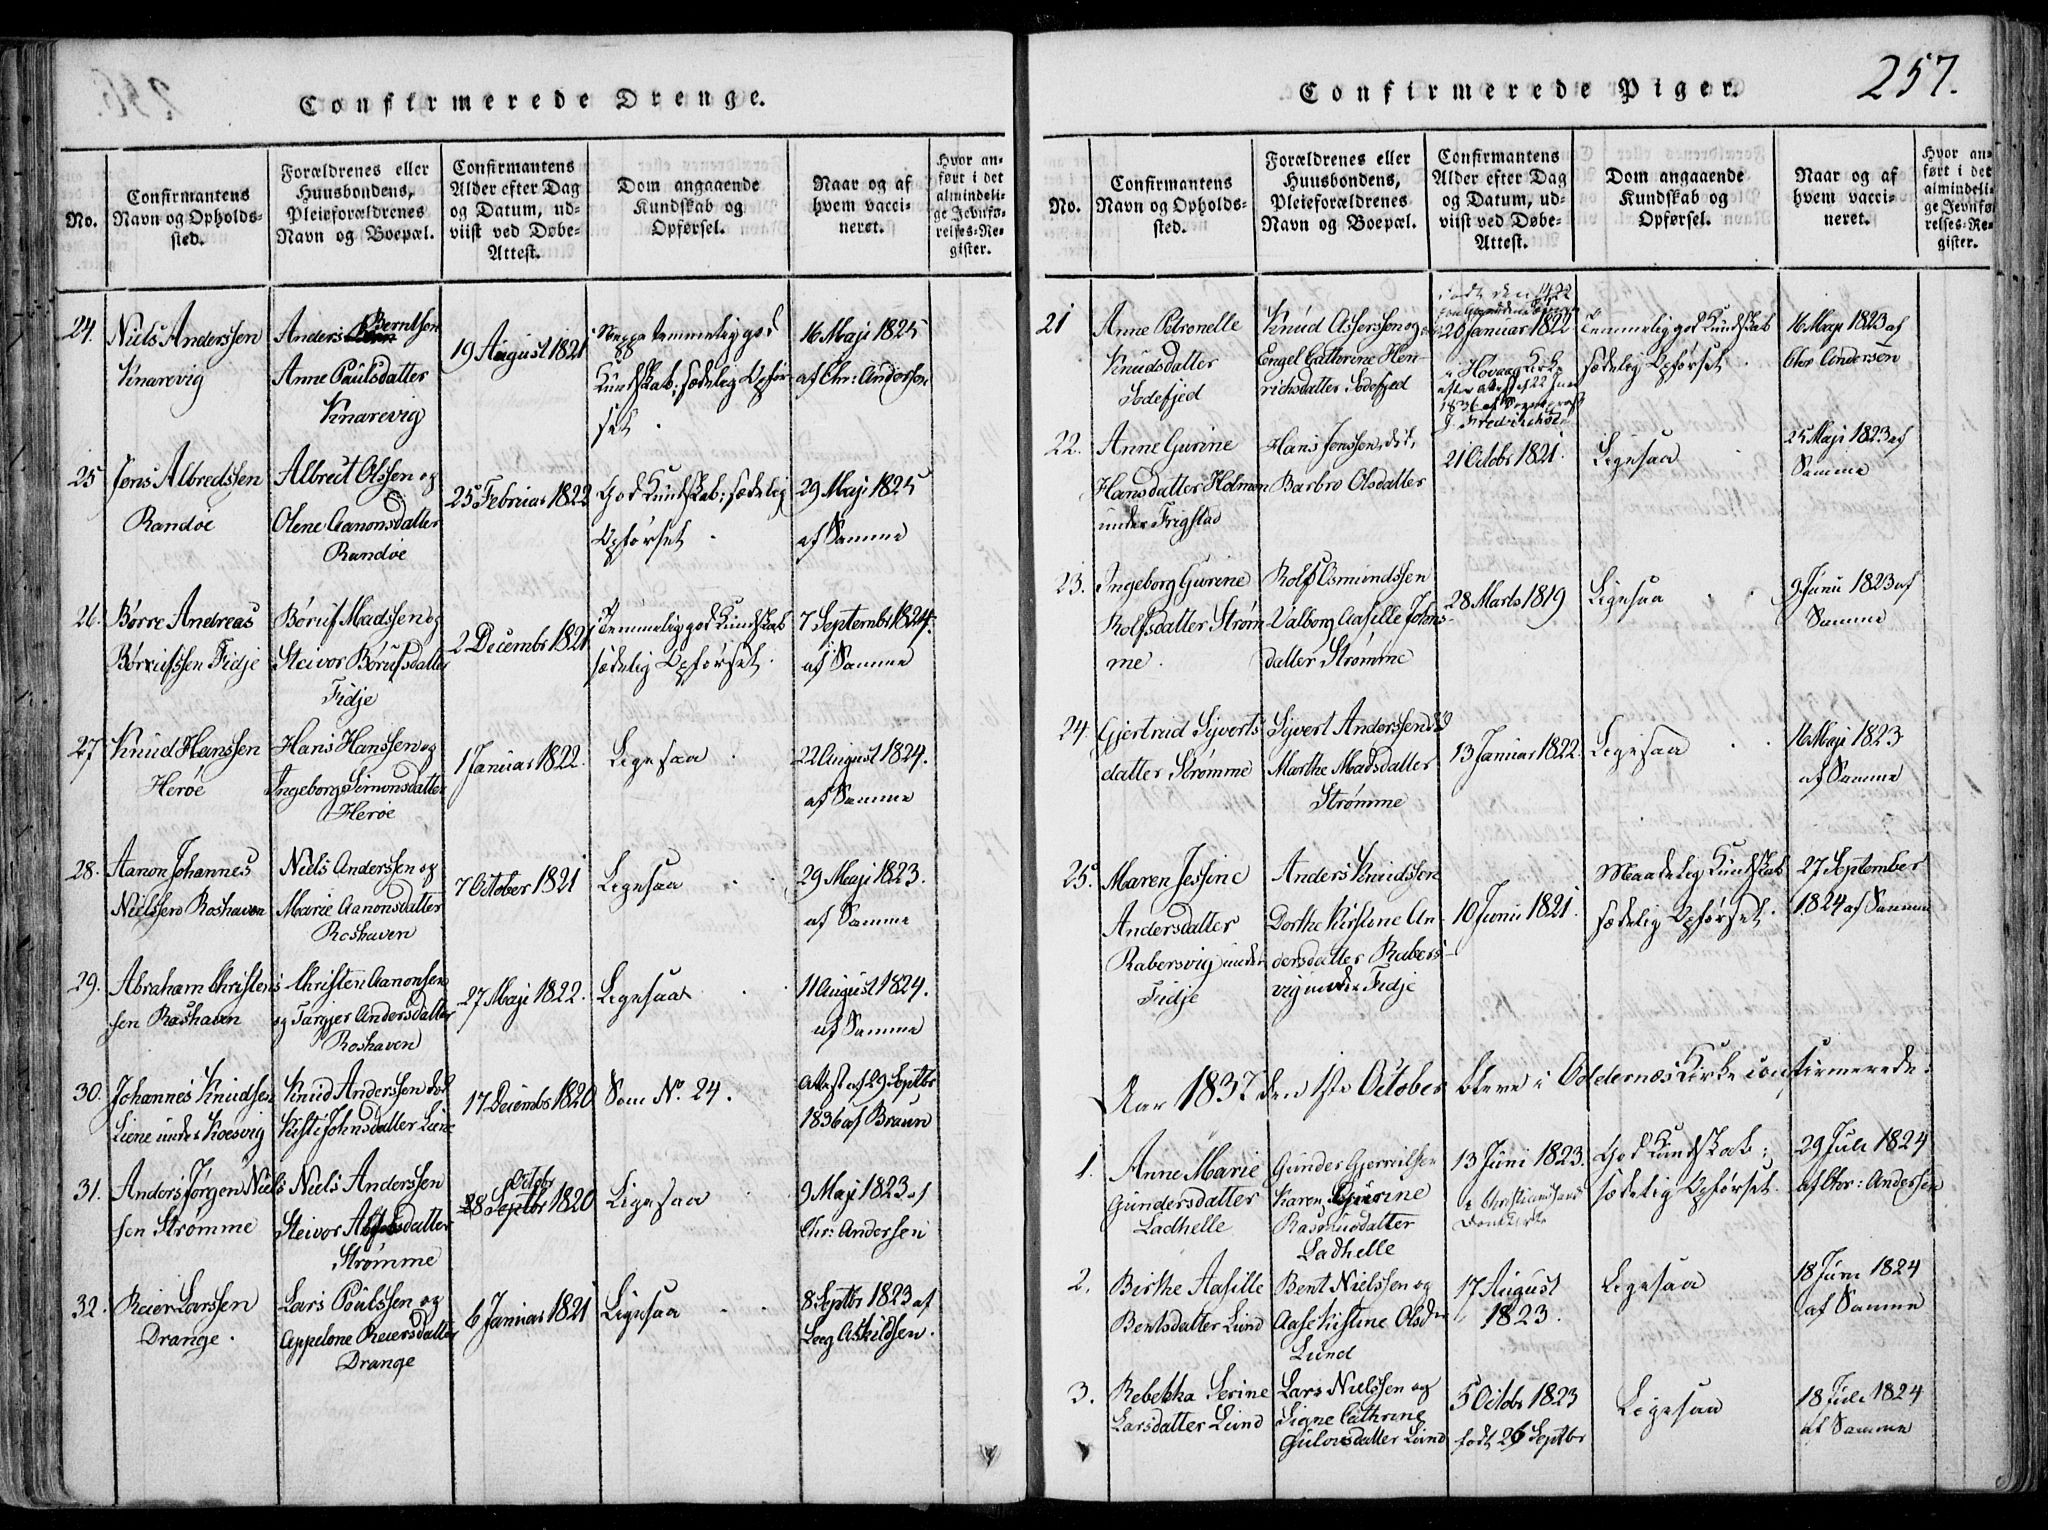 Confirmerede Drenge.
No.
Confirmantens
Navn og Opholds-
sted.
Forældrenes eller
Huusbondens,
Pleieforældrenes
Navn og Boepæl.
Confirmantens
Alder efter Dag
og Datum, ud-
viist ved Døbe-
Attest.
Dom angaaende
Kundskab og
Opførsel.
Naar og af
hvem vacci-
neret.
Hvor an-
ført i det
almindeli-
ge Jevnfø-
relses-Re-
gister.
24.
Niels Anderssen
Knarevig
Anders Berntsen
Anne Paulsdatter
Knarevig
19 August 1821
Neppe temmelig god
Kundskab; sædelig Opfør-
sel.
16 Maji 1825
af Chr: Andersen
25
Jens Albredssen
Randøe
Albrect Olssen og
Olene Aanonsdatter
Randøe
25 Februar 1822
God Kundskab; sædelig
Opførsel.
29 Maji 1825
af Samme
26.
Børre Andreas
Børrufssen Fidje
Børuf Madssen og
Steivor Børufsdatter
Fidje
2 Decembr 1821
Temmelig god Kundskab
sædelig Opførsel.
7 Septembr 1824.
af Samme
27
Knud Hanssen
Herøe
Hans Hanssen og
Ingeborg Simonsdatter
Herøe
1 Januar 1822.
Ligesaa
22 August 1824.
af Samme
28.
Aanon Johannes
Nielssen Roshaven
Niels Anderssen og
Marie Aanonsdatter
Roshaven
7 October 1821
Ligesaa
29 Maji 1823.
af Samme
29.
Abraham Christens
sen Roshaven
Christen Aanonsen
og Targjer Andersdatter
Roshaven
27 Maji 1822.
Ligesaa
11 August 1824.
af Samme
30.
Johannes Knudsen
Liene under Koesvig
Knud Anderssen
Kisti Johnsdatter Liene
17 Decembr 1820
Som No. 24.
Attest af 29 Septbr
1836 af Braun
31.
Anders Jørgen Niels
sen Strømme
Niels Anderssen
Steivor
Strømme
Octobr
28 Septbr 1820
Ligesaa
9 Maji 1823 af
Chr: Andersen
32.
Reier Larssen
Drange.
Lars Poulssen og
Appelone Reiersdatter
Drange
6 Januar 1821
Ligesaa
8 Septbr 1823 af
Leeg Askildsen.
257.
Confirmerede Piger.
No.
Confirmantens
Navn og Opholds-
sted.
Forældrenes eller
Huusbondens,
Pleieforældrenes
Navn og Boepæl.
Confirmantens
Alder efter Dag
og Datum, ud-
viist ved Døbe-
Attest.
Dom angaaende
Kundskab og
Opførsel.
Naar og af
hvem vacci-
neret.
Hvor an-
ført i det
almindeli-
ge Jevnfø-
relses-Re-
gister.
21
Anne Petronelle
Knudsdatter
Sodefjed
Knud Asserssen og
Engel Cathrine Hen
richsdatter Sodefjed
20 Januar 1822
Temmelig god Kundskab
sædelig Opførsel.
16 Maji 1823 af
Chr Andersen
22.
Anne Gurine
Hansdatter Holmen
under Frigstad
Hans Jenssen
Barbro Olsdatter
21 Octobr 1821.
Ligesaa
25 Maji 1823 af
Samme
23.
Ingeborg Gurine
Rolfsdatter Strøm
me.
Rolf Osmundssen
Valborg Aasille Johns-
datter Strømme
28 Marts 1819
Ligesaa
9 Junii 1823 af
Samme
24.
Gjertrud Syverts
datter Strømme
Syvert Anderssen og
Marthe Madsdatter
Strømme
13 Januar 1822.
Ligesaa
16 Maji 1823
af Samme
25.
Maren Jessine
Andersdatter
Rabersvig under
Fidje
Anders Knudssen
Dorthe Kirstine An-
dersdatter Rabers-
vig under Fidje
10 Junii 1821.
Maadelig Kundskab
sædelig Opførsel.
27 September
1824 af Samme
Aar 1837 den 1ste October bleve i Oddernæs Kirke confirmerede:
1.
Anne Marie
Gundersdatter
Ladhelle
Gunder Gjerulfsen
Karen Gurine
Rasmusdatter
Ladhelle
13 Juni 1823.
i Christiansand
Domkirke
God Kundskab;
sædelig Opførsel.
29 Juli 1824
af Chr: Andersen
2.
Birthe Aasille
Bentsdatter Lund
Bent Nielssen og
Aase Kistine Olsdr
Lund
17 August
1823.
Ligesaa
18 Juni 1824
af Samme
3.
Rebekka Serine
Larsdatter Lund
Lars Nielssen og
Signe Cathrine
Gulovsdatter Lund
5 Octobr 1823
født 26 Septbr
Ligesaa
18 Juli 1824
af Samme